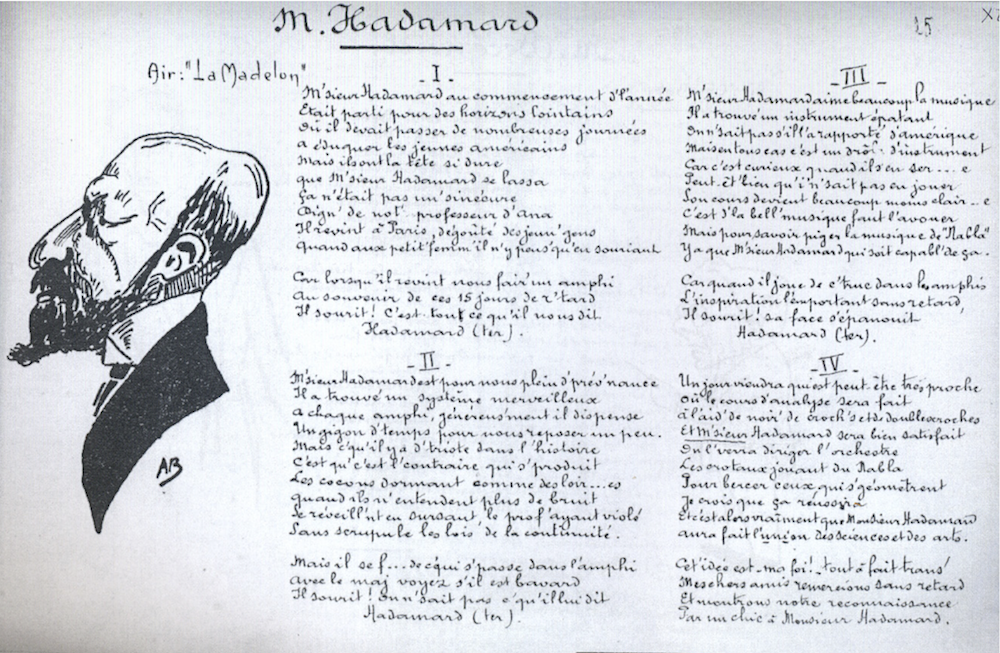 M. Hadamard
25
X
Air: "La Madelon"
- I -
M'sieur Hadamard au commencement d'l'année
Etait parti pour des horizons lointains
Où il devait passer de nombreuses journées
a éduquer les jeunes américains
Mais ils ont la tête si dure
que M'sieur Hadamard se lassa
Ça n'était pas un' sinécure
Dign' de not' professeur d'Ana
Il revint à Paris, dégoûté des jeun' gens
Quand aux petit' femm' il n'y pens' qu'en souriant
Car lorsqu'il revint nous fair' un amphi
Au souvenir de ces 15 jours de r'tard
Il sourit! C'est tout ce qu'il nous dit
Hadamard (ter).
- II -
M'sieur Hadamard est pour nous plein d'prév'nance
Il a trouvé un système merveilleux
a chaque amphi, généreus'ment il dispense
Un gigon d'temps pour nous reposer un peu.
Mais c'qu'il y a d'triste dans l'histoire
C'est qu'c'est l'contraire qui s'produit
Les cocons dormant comme des loir...es
quand ils n'entendent plus de bruit
Se réveill'nt en sursaut, le prof' ayant violé
Sans scrupule les lois de la continuité.
Mais il se f... de c'qui s'passe dans l'amphi
Avec le maj voyez s'il est bavard
Il sourit! On n'sait pas c'qu'il lui dit
Hadamard (ter).
- III -
M'sieur Hadamard aime beaucoup la musique
Il a trouvé un instrument épatant
On n'sait pas s'il l'a rapporté d'amérique
Mais en tous cas c'est un drôl' d'instrument
Car c'est curieux quand il s'en ser...e
Peut-êt' bien qu'i n'sait pas en jouer
Son cours devient beaucoup moins clair...e
C'est d'la bell' musique faut l'avouer
Mais pour savoir piger la musique de "Nabla"
Y a que M'sieur Hadamard qui soit capabl' de ça.
Car quand il joue de c'truc dans les amphis
L'inspiration l'emportant sans retard,
Il sourit! sa face s'épanouit
Hadamard (ter).
- IV -
Un jour viendra qui est peut être très proche
Où le cours d'analyse sera fait
à l'aid' de noir' de croch's et de doubl's croches
Et M'sieur Hadamard sera bien satisfait
On l'verra diriger l'orchestre
Les crotaux jouant du Nabla
Pour bercer ceux qui s'géomètrent
Je crois que ça réussira
Et c'est alors vraiment que Monsieur Hadamard
aura fait l'union des sciences et des arts.
Cet' idée est ma foi! tout à fait trans'
Mes chers amis remercions sans retard
Et montrons notre reconnaissance
Par un chic à Monsieur Hadamard.
AB